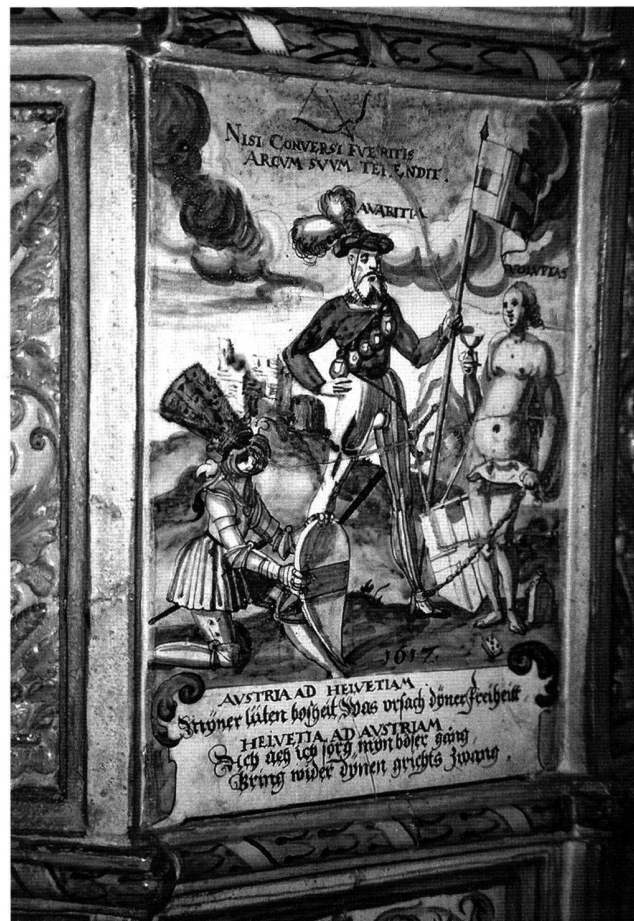 NISI CONVERSI FVERITIS
ARCVM SVVM TETENDIT.
AVARITIA
VOLVPTAS
1617.
AVSTRIA AD HELVETIAM
lüten bosheit, Was ursach döner freiheitt.
HELVETIA AD AVSTRIAM
Sich ach ich sorg, myn böser gang
Bring wider dynen grichts zwang.